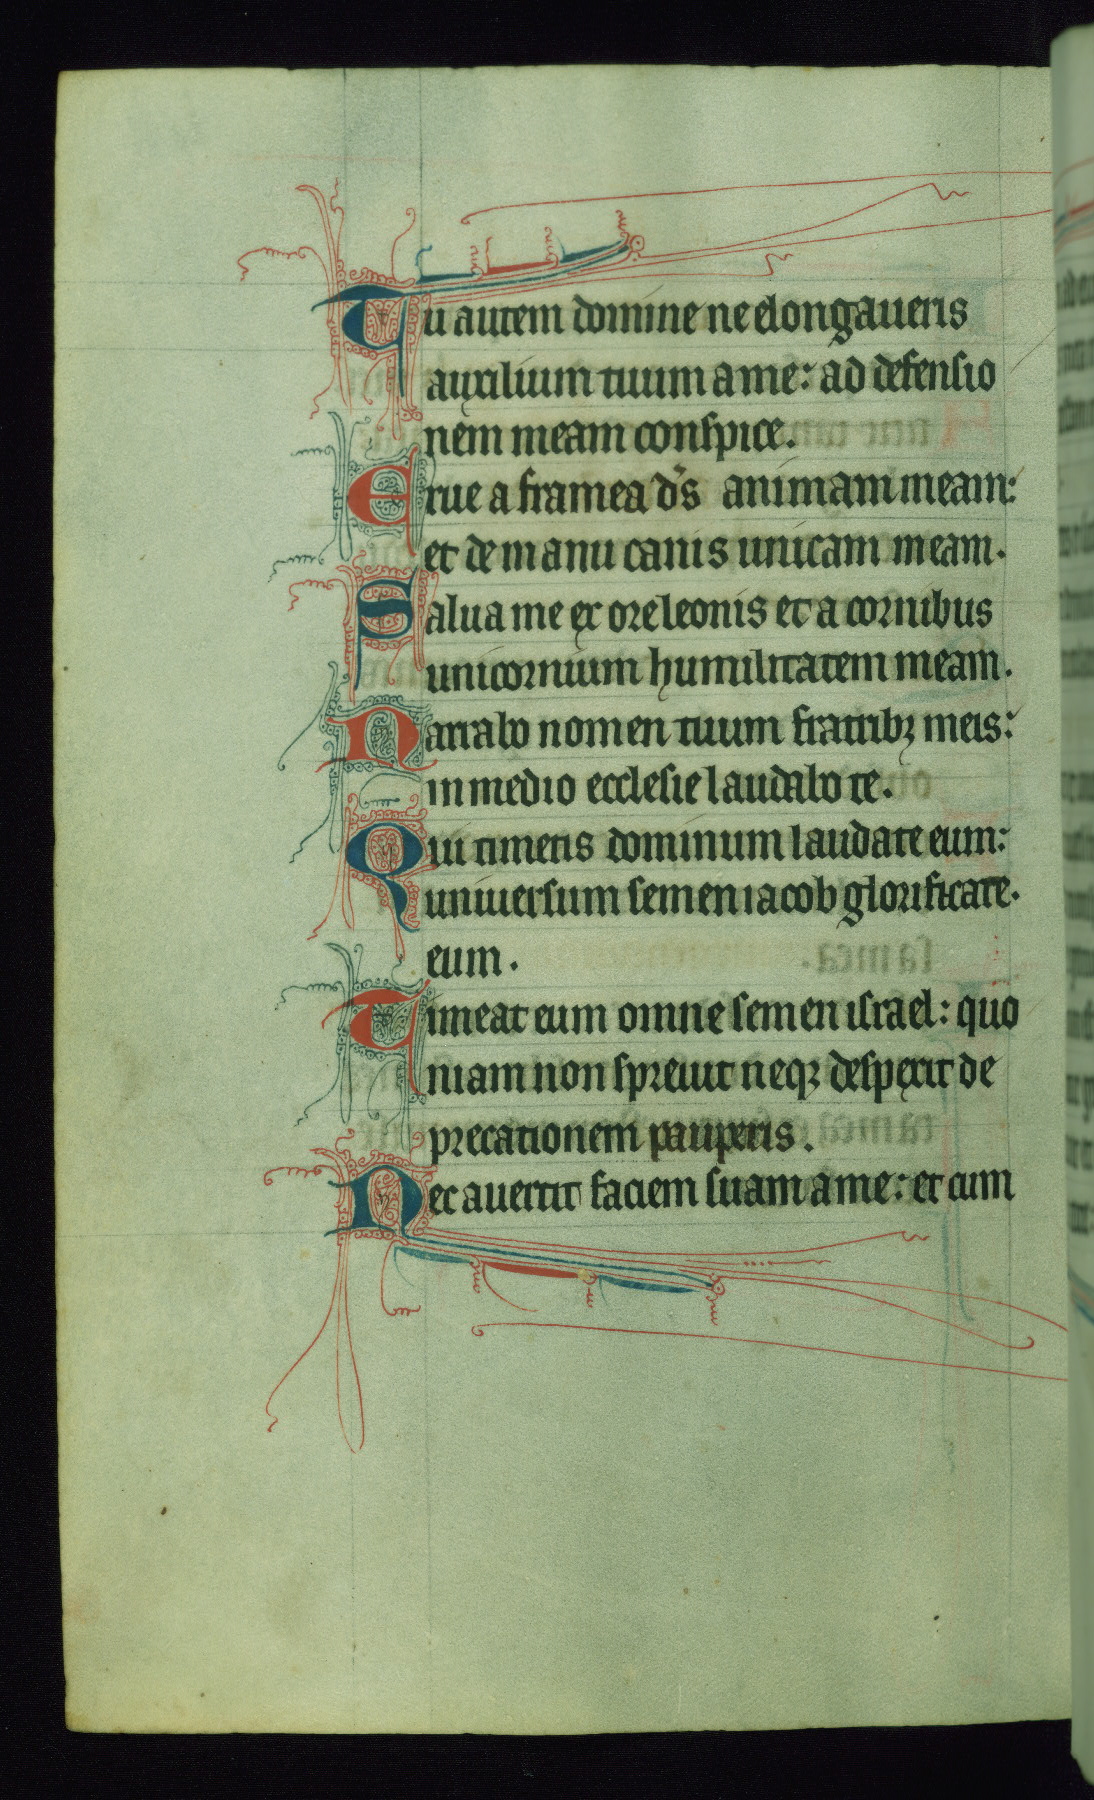 Tu autem domine ne elongaueris
auxilium tuum a me: ad defensio
nem meam conspice.
Erue a framea d̄s animam meam:
et de manu canis unicam meam.
Salua me ex ore leonis et a cornibus
unicornium humilitatem meam.
Narrabo nomen tuum fratribꝫ meis:
in medio ecclesie laudabo te.
Qui timetis dominum laudate eum:
uniuersum semen iacob glorificate.
eum.
Timeat eum omne semen israel: quo
niam non spreuit neqꝫ despexit de
precationem pauperis.
Nec auertit faciem suam a me: et cum